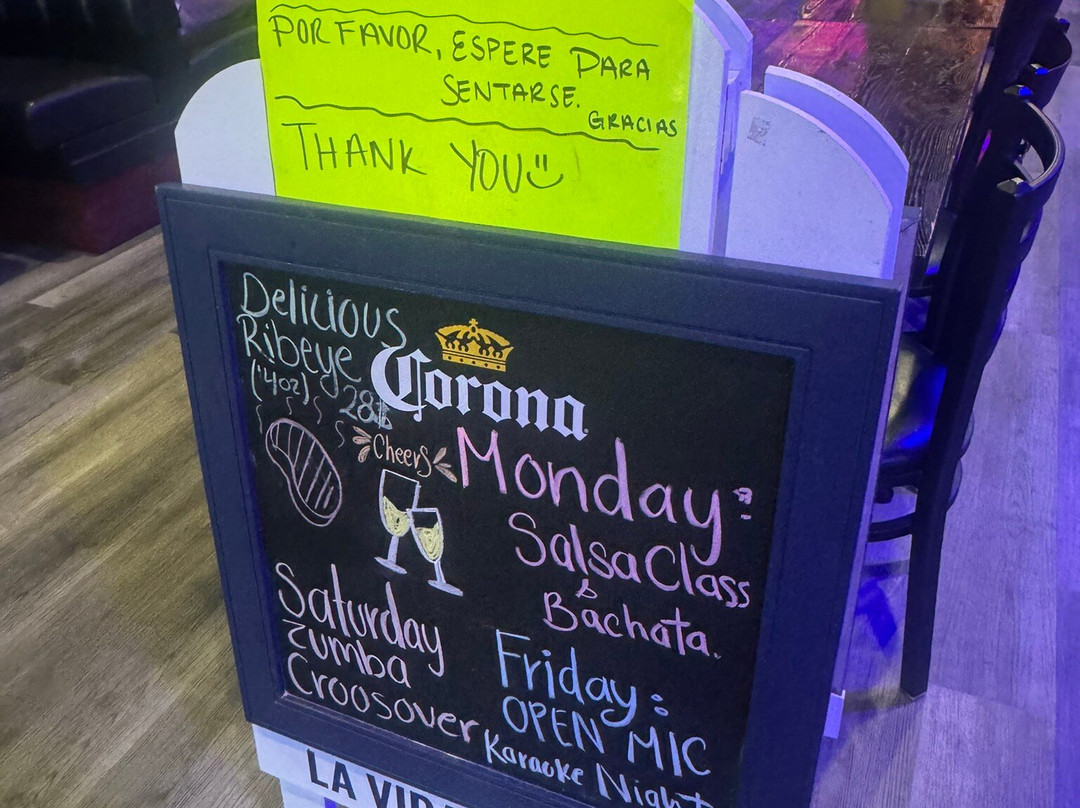 POR FAVOR, ESPERE PARA
SENTARSE.
GRACIAS
THANK YOU
Delicious
Ribeye
(14oz)
28$
Corona
Cheers
Monday:
Salsa Class
&
Bachata.
Saturday
Zumba
Croosover
Friday:
OPEN MIC
Karaoke Night
LA VID